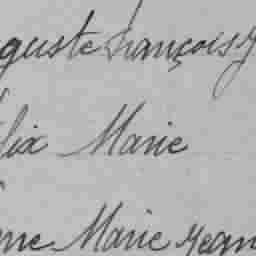 guste François
lix Marie
ne Marie Jean